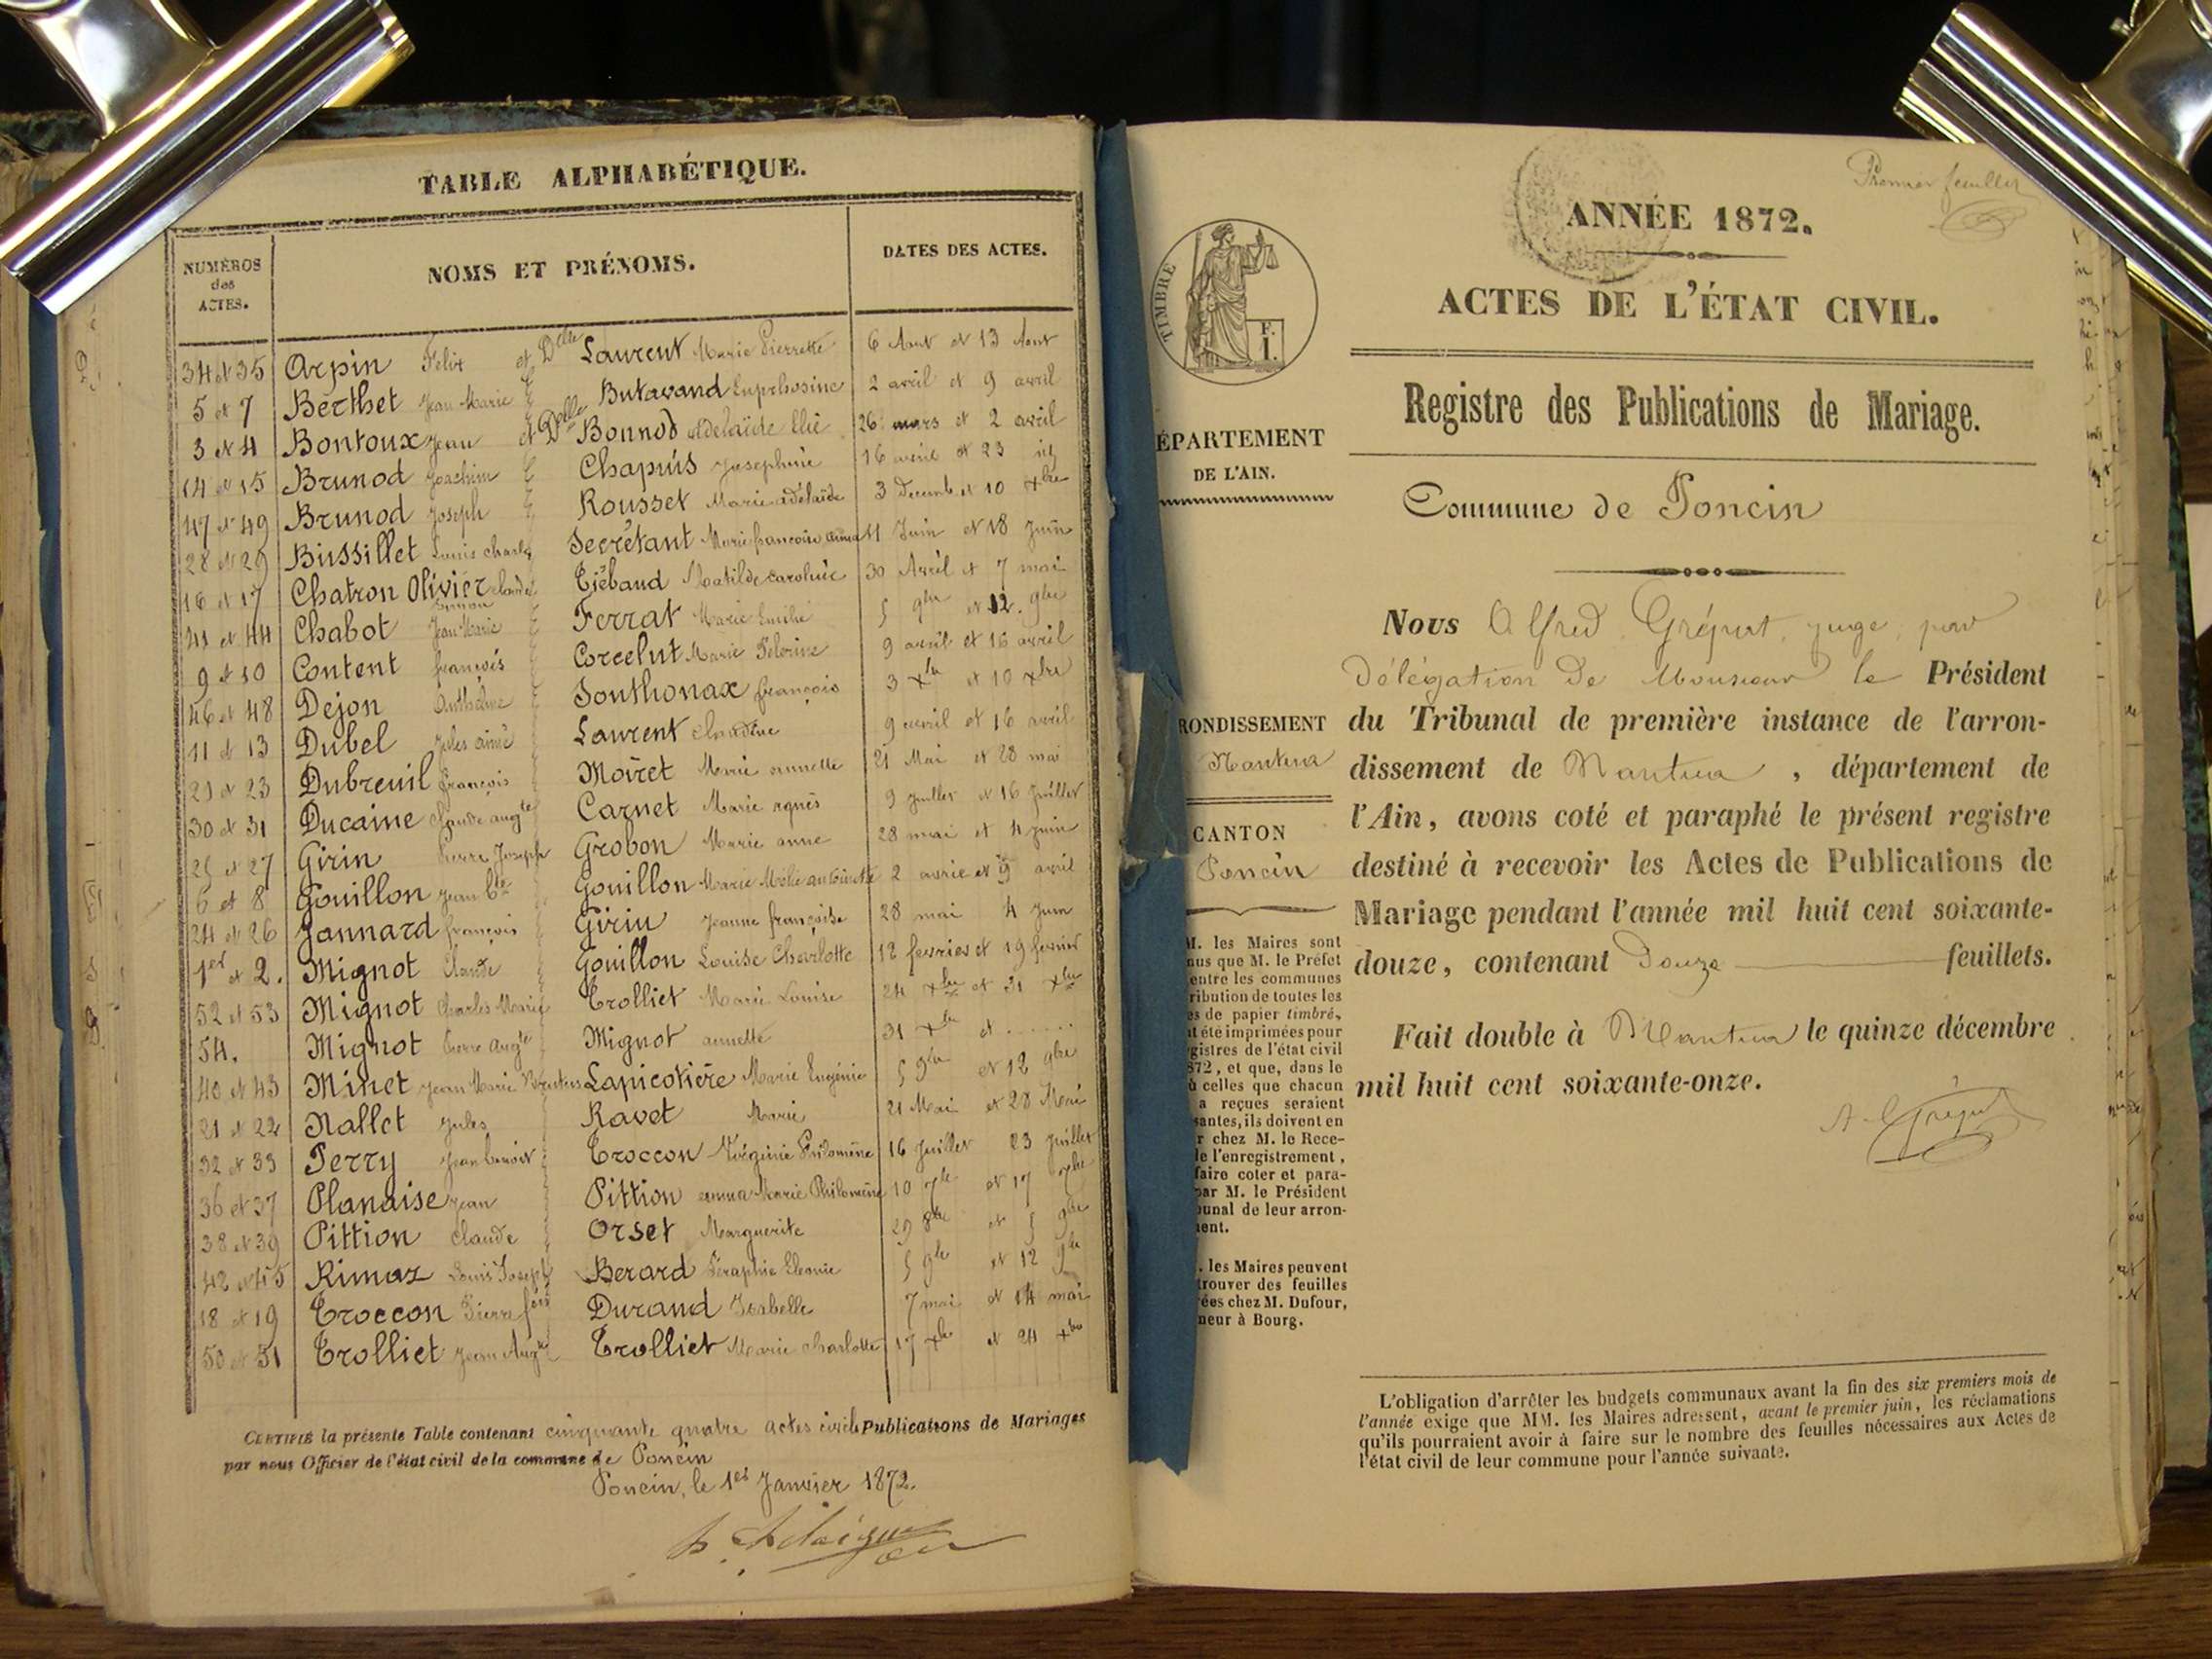 TABLE ALPHABÉTIQUE.
NUMÉROS des ACTES.
NOMS ET PRÉNOMS.
DATES DES ACTES.
34 et 35 Arpin Felix et Delle Laurent Marie Pierrette 6 Aout et 13 Aout
5 et 7 Berthet Jean Marie Butavand Euphrosine 2 avril et 9 avril
3 et 4 Bontoux Jean et Delle Bonnod Adelaïde 26 mars et 2 avril
14 et 15 Brunod Joachim Chapuis Josephine 16 avril et 23
47 et 49 Brunod Joseph Rousset Marie adélaïde 3 Decemb. et 10 Xbre
28 et 29 Bussillet Louis Charles Secrétant Marie francoise 11 Juin et 18 Juin
16 et 17 Chatron Olivier Claude Tiébaud Matilde Caroline 30 Avril et 7 mai
41 et 44 Chabot Jean Marie Ferrat Marie Emilie 5 9bre et 12. 9bre
9 et 10 Content françois Corcelut Marie Pelorine 9 avril et 16 avril
46 et 48 Dejon Anthelme Sonthonax françois 3 Xbre et 10 Xbre
11 et 13 Dubel Jules aimé Laurent Claudine 9 avril et 16 avril
21 et 23 Dubreuil françois Moiret Marie annette 21 Mai et 28 mai
30 et 31 Ducaine Claude augte Carnet Marie agnès 9 Juillet et 16 Juillet
25 et 27 Girin Pierre Joseph Grobon Marie anne 28 mai et 4 juin
6 et 8 Gouillon Jean Bte Gouillon Marie antoinette 2 avril et 9 avril
24 et 26 Jannard françois Girin Jeanne françoise 28 mai 4 Juin
1er et 2. Mignot Claude Gouillon Louise Charlotte 12 fevrier et 19 fevrier
52 et 53 Mignot Charles Marie Trolliet Marie Louise 24 Xbre et 31 Xbre
54. Mignot Pierre augte Mignot annette 31 Xbre et .......
40 et 43 Minet Jean Marie Lapicotière Marie Eugénie 5 9bre et 12 9bre
21 et 22 Nallet Jules Ravet Marie 21 Mai et 28 Mai
32 et 33 Perry Jean Benoit Troccon Virginie Philomène 16 Juillet 23 Juillet
36 et 37 Planaise Jean Pittion anna Marie Philomène 10 7bre et 17 7bre
38 et 39 Pittion Claude Orset Marguerite 29 8bre et 5 9bre
42 et 45 Rimaz Louis Joseph Berard Séraphie Eleonie 5 9bre et 12 9bre
18 et 19 Troccon Pierre fois Durand Isabelle 7 mai et 14 mai
50 et 51 Trolliet Jean Augte Trolliet Marie Charlotte 17 Xbre et 24 Xbre
CERTIFIÉ la présente Table contenant cinquante quatre actes civils Publications de Mariages
par nous Officier de l'état civil de la commune de Poncin
Poncin, le 1er Janvier 1872.
Premier feuillet
ANNÉE 1872.
ACTES DE L'ÉTAT CIVIL.
Registre des Publications de Mariage.
Commune de Poncin
TIMBRE
F. I.
ÉPARTEMENT
DE L'AIN.
RONDISSEMENT
Nantua
CANTON
Poncin
M. les Maires sont
nus que M. le Préfet
entre les communes
ribution de toutes les
es de papier timbré,
t été imprimées pour
gistres de l'état civil
872, et que, dans le
ù celles que chacun
a reçues seraient
santes, ils doivent en
r chez M. le Rece-
le l'enregistrement,
faire coter et para-
par M. le Président
bunal de leur arron-
ment.
. les Maires peuvent
trouver des feuilles
ées chez M. Dufour,
neur à Bourg.
Nous Alfred Grépat, juge, par
Délégation de Monsieur le Président
du Tribunal de première instance de l'arron-
dissement de Nantua, département de
l'Ain, avons coté et paraphé le présent registre
destiné à recevoir les Actes de Publications de
Mariage pendant l'année mil huit cent soixante-
douze, contenant Douze feuillets.
Fait double à Nantua le quinze décembre
mil huit cent soixante-onze.
L'obligation d'arrêter les budgets communaux avant la fin des six premiers mois de
l'année exige que MM. les Maires adressent, avant le premier juin, les réclamations
qu'ils pourraient avoir à faire sur le nombre des feuilles nécessaires aux Actes de
l'état civil de leur commune pour l'année suivante.